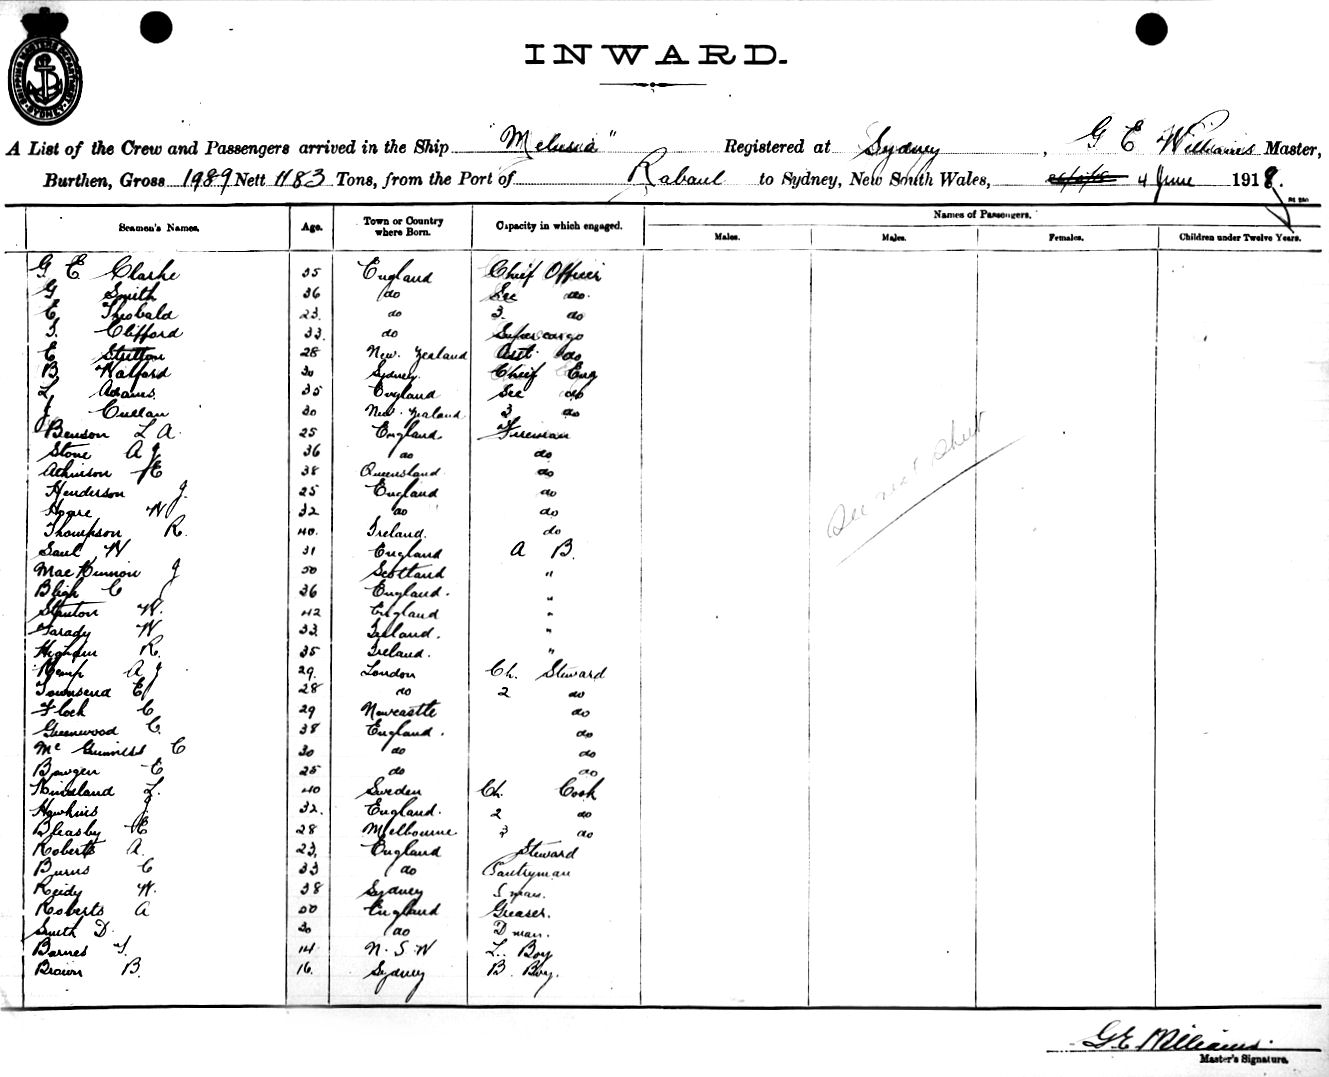 SHIPPING MASTER'S DEPARTMENT SYDNEY
INWARD.
A List of the Crew and Passengers arrived in the Ship "Melusia" Registered at Sydney, G E Williams Master,
Burthen, Gross 1989 Nett 1183 Tons, from the Port of Rabaul to Sydney, New South Wales, 4 June 1918.
Names of Passengers.
Seamen's Names. Age. Town or Country where Born. Capacity in which engaged. Males. Males. Females. Children under Twelve Years.
G E Clarke 35 England Chief Officer
G Smith 36 do Sec do
E Theobald 23 do 3 do
Clifford 33 do Supercargo
E Stutton 28 New Zealand Asst do
B Halford 30 Sydney Chief Eng
L Adams 35 England Sec do
J Cullan 30 New Zealand 3 do
Benson L A 25 England Fireman
Stone A J 36 do do
Atkinson 38 Queensland do
Henderson J. 25 England do
Hoare W 32 do do
Thompson R. 40 Ireland. do
Saul W 31 England A B.
MacKinnon J 50 Scotland "
Bligh C 36 England. "
Stanton W. 42 England "
Tarady W 33 Ireland. "
Higham R. 35 Ireland. "
Kemp A J 29. London Ch. Steward
Townsend E 28 do 2 do
Flock C 29 Newcastle do
Greenwood C. 38 England. do
Mc Guinness C 30 do do
Bowgen E 25 do do
L. 40 Sweden Ch. Cook
Hawkins J 32. England. 2 do
Bleasby 28 Melbourne 3 do
Roberts A. 23. England Steward
Burns C 33 do Pantryman
Reidy W. 38 Sydney S man.
Roberts A 50 England Greaser.
Smith D. 30 do D man.
Barnes T. 14 N.S.W L. Boy
Brown B. 16. Sydney B. Boy.
See next sheet
G E Williams.
Master's Signature.